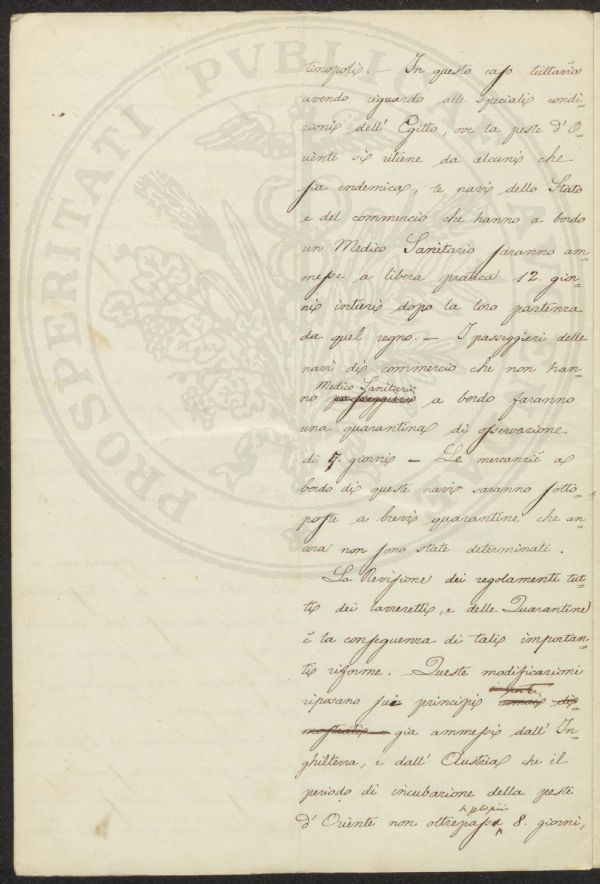 tinopoli. — In questo caso tuttavia
avendo riguardo alle speciali condi-
zioni dell' Egitto, ove la peste d'O-
riente si ritiene da alcuni che
sia endemica, le navi dello Stato
e del commercio che hanno a bordo
un Medico Sanitario saranno am-
messe a libera pratica 12. gior-
ni intieri dopo la loro partenza
da quel regno. — I passeggieri delle
navi di commercio che non han-
Medico Sanitario
no a bordo faranno
una quarantina di osservazione
di 7. giorni — Le mercanzie a
bordo di queste navi saranno sotto-
poste a brevi quarantine che an-
cora non sono state determinati.
La Revisione dei regolamenti tut-
ti dei lazzeretti, e delle Quarantine
è la conseguenza di tali importan-
ti riforme. Queste modificazioni
riposano sui principi omai di-
mostrati già ammessi dall' In-
ghilterra, e dall' Austria che il
periodo di incubazione della peste
d'Oriente non oltrepassa 8. giorni,
PROSPERITATI PVBLICAE